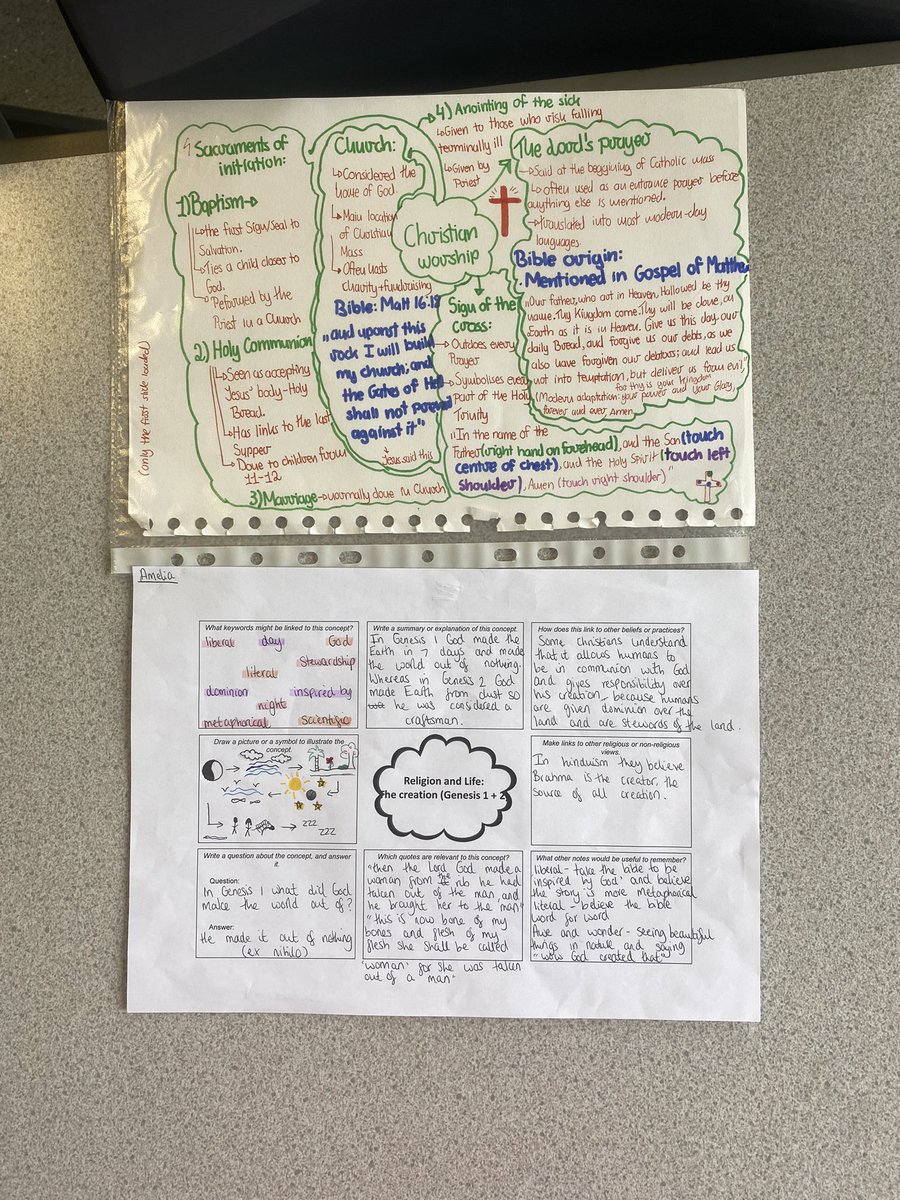 4 Sacraments of
initiation:
1) Baptism→
↳the first Sign/Seal to
Salvation.
↳Ties a child closer to
God.
↳Peformed by the
Priest in a Church
2) Holy Communion
↳Seen as accepting
Jesus' body-Holy
Bread.
↳Has links to the last
Supper
↳Done to children from
11-12
3) Marriage→normally done in Church
(only the first slide loaded)
Church:
↳Considered the
home of God.
↳Main location
of Christian
Mass
↳Often hosts
charity+fundraising
Bible: Matt 16:18
"and upon this
rock I will build
my church; and
the Gates of Hell
shall not prevail
against it"
↳Jesus said this
4) Anointing of the sick
↳Given to those who risk falling
terminally ill
↳Given by
Priest
Christian
worship
The Lord's prayer
→Said at the beggining of Catholic mass
↳often used as an entrance prayer before
anything else is mentioned.
→translated into most modern-day
languages
Bible origin:
Mentioned in Gospel of Matthew
"Our Father, who art in Heaven, Hallowed be thy
name. Thy Kingdom come. Thy will be done, on
Earth as it is in Heaven. Give us this day our
daily Bread, and forgive us our debts, as we
also have forgiven our debtors; and lead us
not into temptation, but deliver us from evil,"
(Modern adaptation: for thy is your Kingdom
your power and your Glory,
forever and ever, Amen.
Sign of the
cross:
→Outdoes every
Prayer
→Symbolises every
part of the Holy
Trinity
"In the name of the
Father (right hand on forehead), and the Son (touch
centre of chest), and the Holy Spirit (touch left
shoulder), Amen (touch right shoulder)"
Amelia
What keywords might be linked to this concept?
liberal day God
Stewardship
literal
dominion inspired by
night
metaphorical scientific
Write a summary or explanation of this concept.
In Genesis 1 God made the
Earth in 7 days and made
the world out of nothing.
Whereas in Genesis 2 God
made Earth from dust so
he was considered a
craftsman.
How does this link to other beliefs or practices?
Some christians understand
that it allows humans to
be in communion with God
and gives responsibility over
his creation because humans
are given dominion over the
land and are stewords of the land.
Draw a picture or a symbol to illustrate the
concept.
zzz
zzz
Religion and Life:
The creation (Genesis 1 + 2)
Make links to other religious or non-religious
views.
In hinduism they believe
Brahma is the creator, the
source of all creation.
Write a question about the concept, and answer
it.
Question:
In Genesis 1 what did God
make the world out of?
Answer:
He made it out of nothing
(ex nihilo)
Which quotes are relevant to this concept?
"then the Lord God made a
woman from the rib he had
taken out of the man, and
he brought her to the man"
"this is now bone of my
bones and flesh of my
flesh she shall be called
'woman' for she was taken
out of a man"
What other notes would be useful to remember?
liberal- take the bible to be
'inspired by God' and believe
the story is more metaphorical
literal - believe the bible
word for word
Awe and wonder - seeing beautiful
things in nature and saying
"wow God created that"